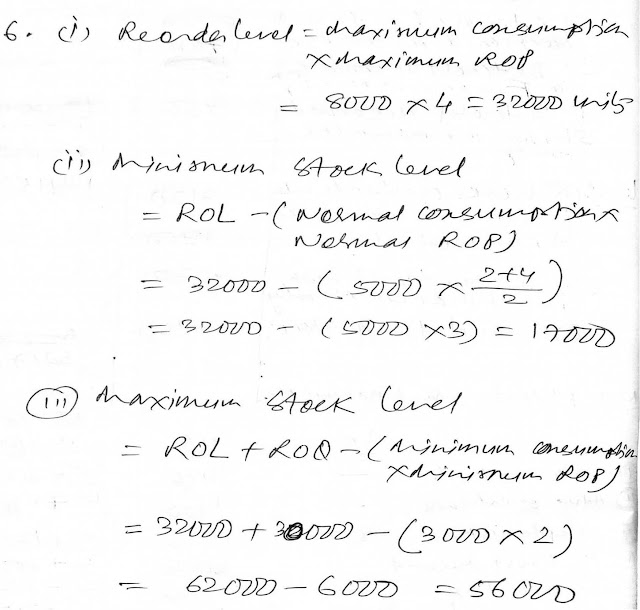 6. (i) Reorder level = maximum consumption
× maximum ROP
= 8000 × 4 = 32000 units
(ii) Minimum Stock level
= ROL - (Normal consumption ×
Normal ROP)
= 32000 - (5000 × 2+4/2)
= 32000 - (5000 × 3) = 17000
(iii) Maximum Stock level
= ROL + ROQ - (Minimum consumption
× Minimum ROP)
= 32000 + 30000 - (3000 × 2)
= 62000 - 6000 = 56000